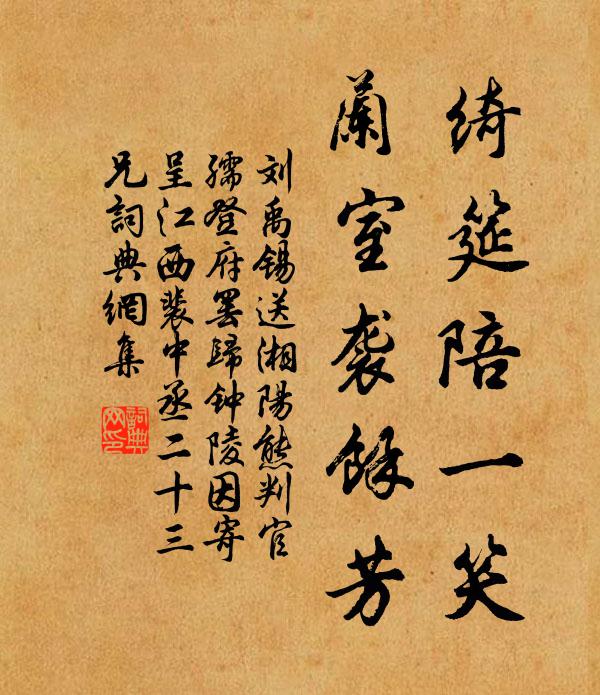 绮筵陪一笑
蘭室袭餘芳
刘禹锡送湘陽熊判官
孺登府罢歸钟陵因寄
呈江西裴中丞二十三
兄詞典網集
詞典网印